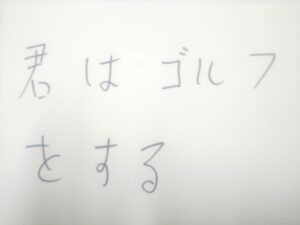 君はゴルフ
をする